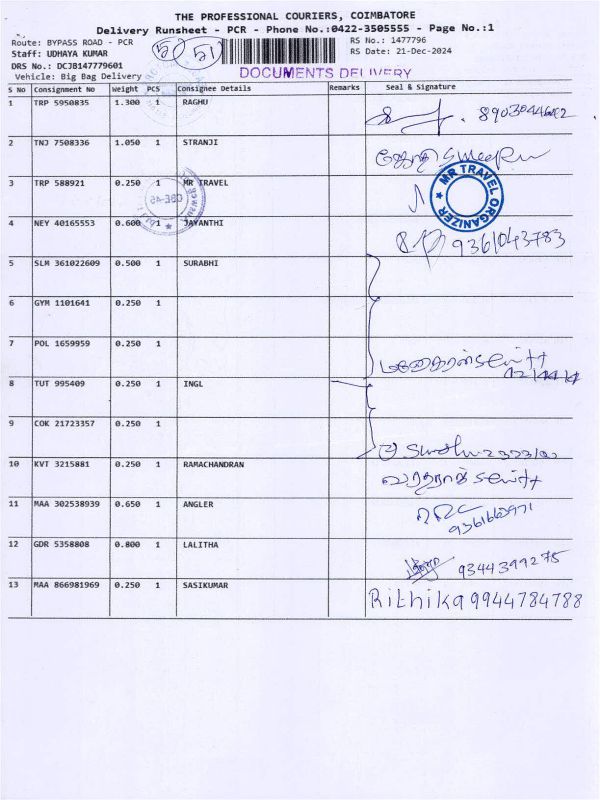 THE PROFESSIONAL COURIERS, COIMBATORE
Delivery Runsheet - PCR - Phone No.:0422-3505555 - Page No.:1
Route: BYPASS ROAD - PCR
Staff: UDHAYA KUMAR
DRS No.: DCJB147779601
Vehicle: Big Bag Delivery
51
RS No.: 1477796
RS Date: 21-Dec-2024
DOCUMENTS DELIVERY
S No Consignment No Weight PCS Consignee Details Remarks Seal & Signature
1 TRP 5950835 1.300 1 RAGHU
2 TNJ 7508336 1.050 1 STRANJI
3 TRP 588921 0.250 1 MR TRAVEL
MR TRAVEL ORGANIZER
4 NEY 40165553 0.600 1 JAYANTHI 9361043783
5 SLM 361022609 0.500 1 SURABHI
6 GYM 1101641 0.250 1
7 POL 1659959 0.250 1
8 TUT 995409 0.250 1 INGL
9 COK 21723357 0.250 1
10 KVT 3215881 0.250 1 RAMACHANDRAN
11 MAA 302538939 0.650 1 ANGLER
12 GDR 5358808 0.800 1 LALITHA 9344399275
13 MAA 866981969 0.250 1 SASIKUMAR Rithika 9944784788